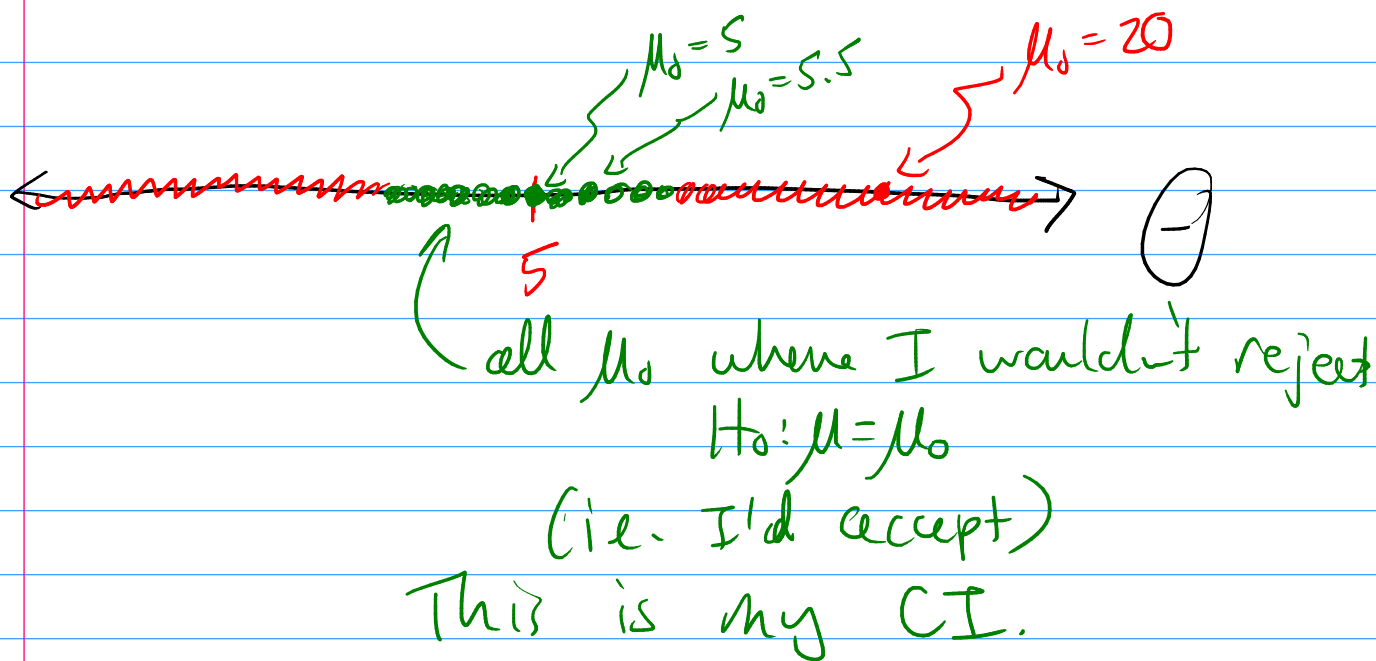 μ₀ = 5
μ₀ = 5.5
μ₀ = 20
5
Θ
all μ₀ where I wouldn't reject
H₀: μ = μ₀
(ie. I'd accept)
This is my CI.